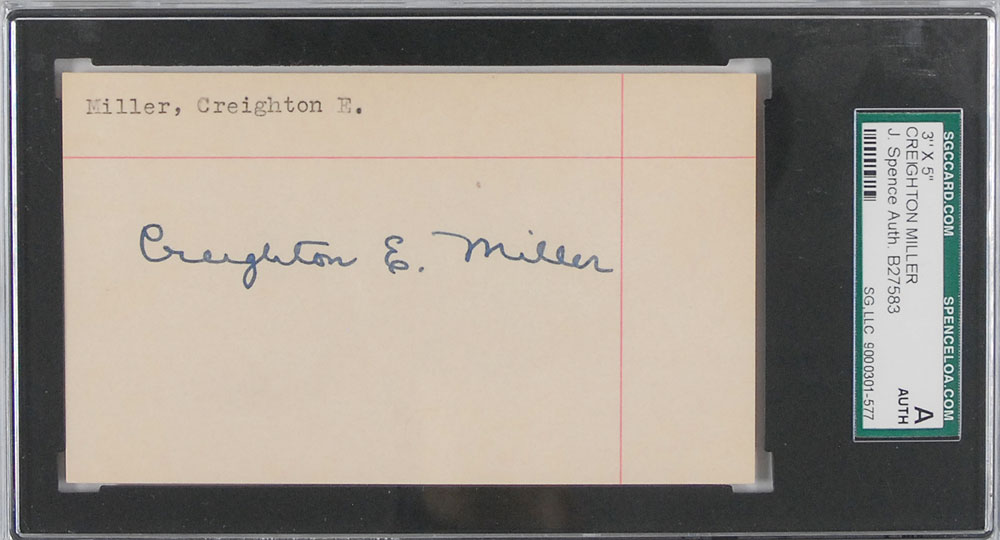 Miller, Creighton E.
Creighton E. Miller
SGCCARD.COM SPENCELOA.COM
3' X 5"
CREIGHTON MILLER
J. Spence Auth. B27583
A
AUTH
SG,LLC 9000301-577